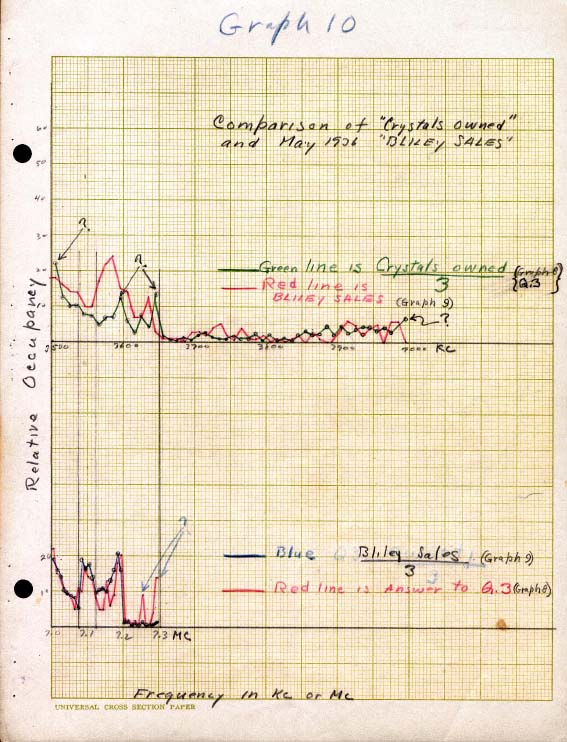 Graph 10
Comparison of "Crystals owned"
and May 1936 "BLILEY SALES"
60
50
40
30
20
10
?
?
Green line is Crystals owned (Graph 8)
3
Q.3
Red line is
BLILEY SALES (Graph 9)
?
3500 3600 3700 3800 3900 4000 KC
Relative Occupancy
?
20
10
Blue Bliley Sales (Graph 9)
3
Red line is Answer to Q.3 (Graph 8)
7.0 7.1 7.2 7.3 MC
Frequency in Kc or Mc
UNIVERSAL CROSS SECTION PAPER